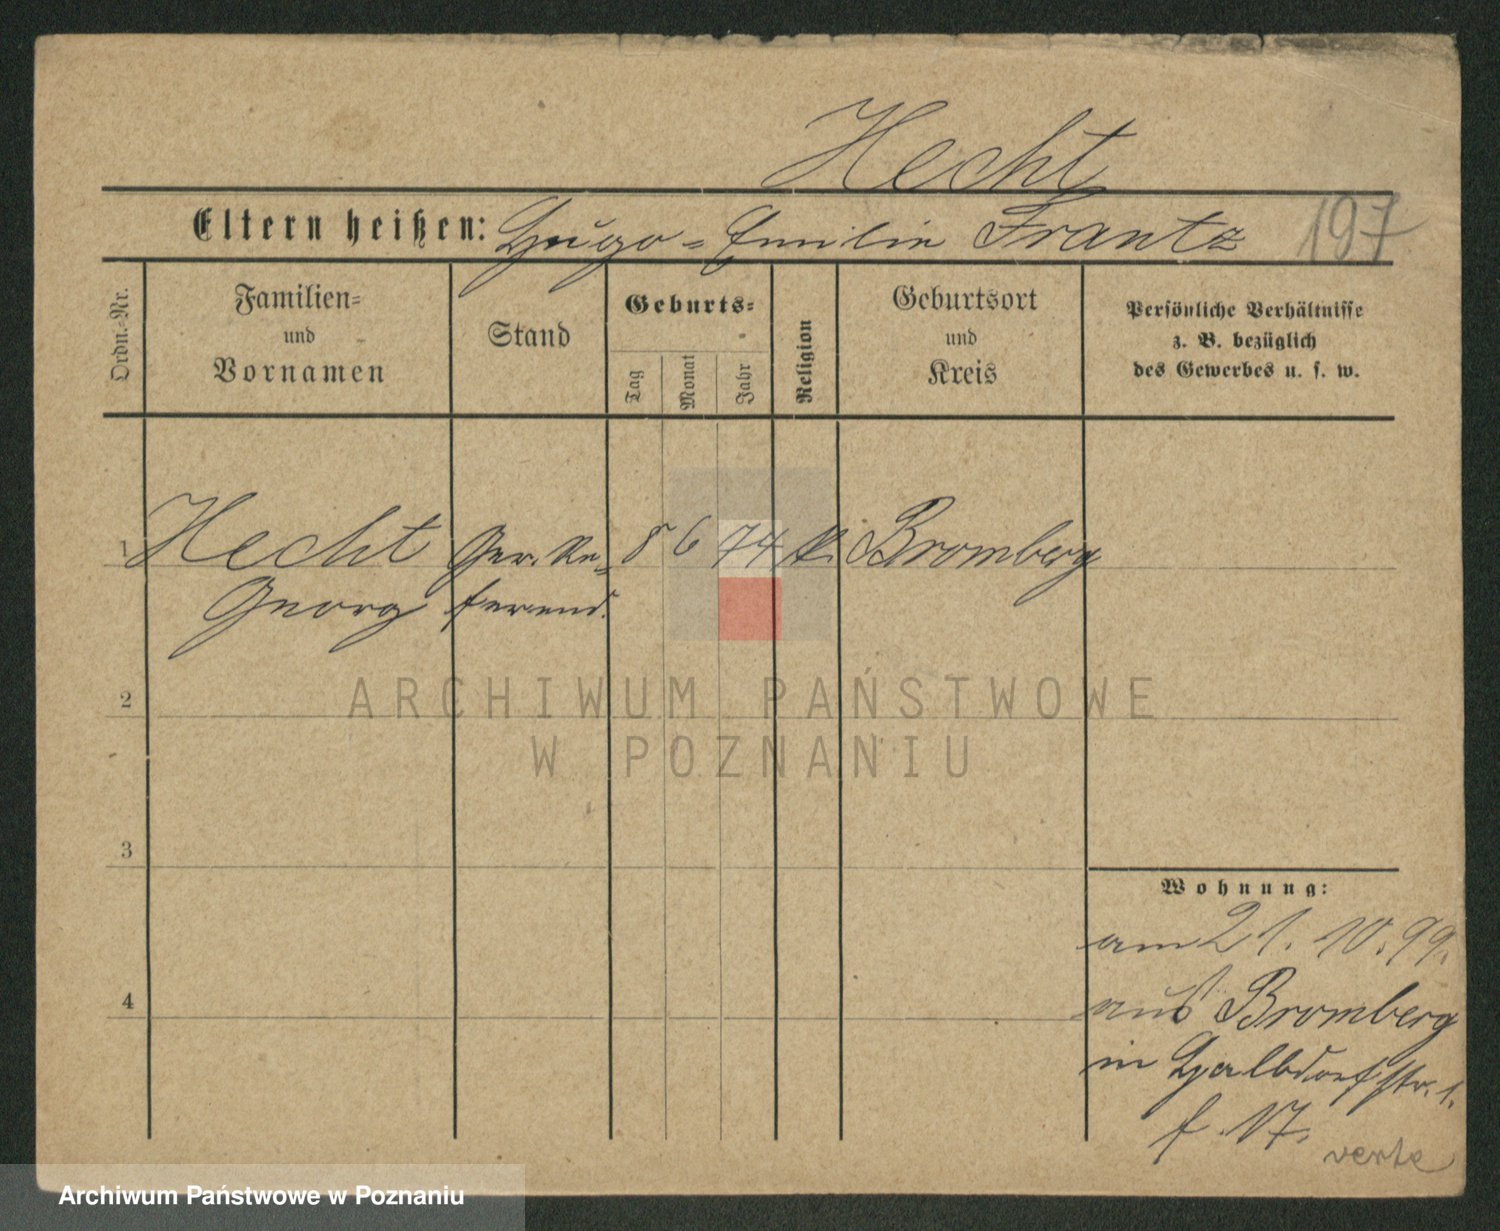 Hecht
Eltern heißen: Hugo = Emilie Frantz 197
Ordn.=Nr.
Familien=
und
Vornamen
Stand
Geburts=
Tag
Monat
Jahr
Religion
Geburtsort
und
Kreis
Persönliche Verhältnisse
z. B. bezüglich
des Gewerbes u. s. w.
1 Hecht Ger. Re= 8 6 74 k. Bromberg
Georg ferend.
ARCHIWUM PAŃSTWOWE
2
W POZNANIU
3
Wohnung:
am 21. 10. 99.
aus Bromberg
4
in Halbdorfstr. 1.
f. 17.
verte
Archiwum Państwowe w Poznaniu